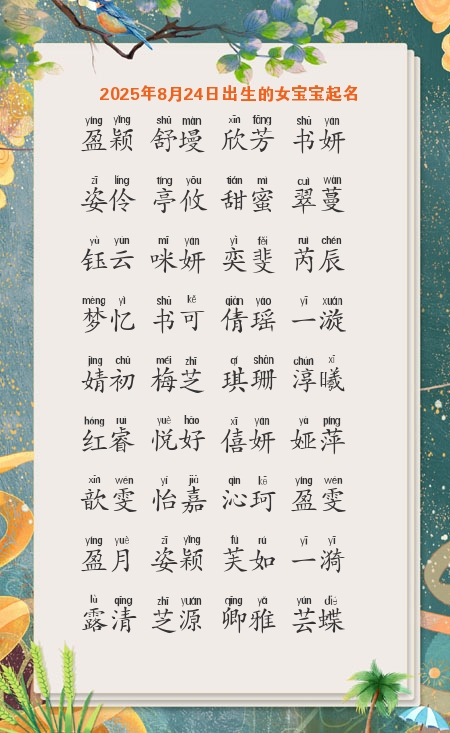 2025年8月24日出生的女宝宝起名
yíng yǐng shū màn xīn fāng shū yán
盈颖 舒墁 欣芳 书妍
zī líng tíng yōu tián mì cuì wàn
姿伶 亭攸 甜蜜 翠蔓
yù yún mī yán yì fěi ruì chén
钰云 咪妍 奕斐 芮辰
mèng yì shū kě qiàn yáo yī xuán
梦忆 书可 倩瑶 一漩
jìng chū méi zhī qí shān chún xī
婧初 梅芝 琪珊 淳曦
hóng ruì yuè hǎo xī yán yà píng
红睿 悦好 僖妍 娅萍
xīn wén yí jiā qìn kē yíng wén
歆雯 怡嘉 沁珂 盈雯
yíng yuè zī yǐng fú rú yī yī
盈月 姿颖 芙如 一漪
lù qīng zhī yuán qīng yǎ yún dié
露清 芝源 卿雅 芸蝶